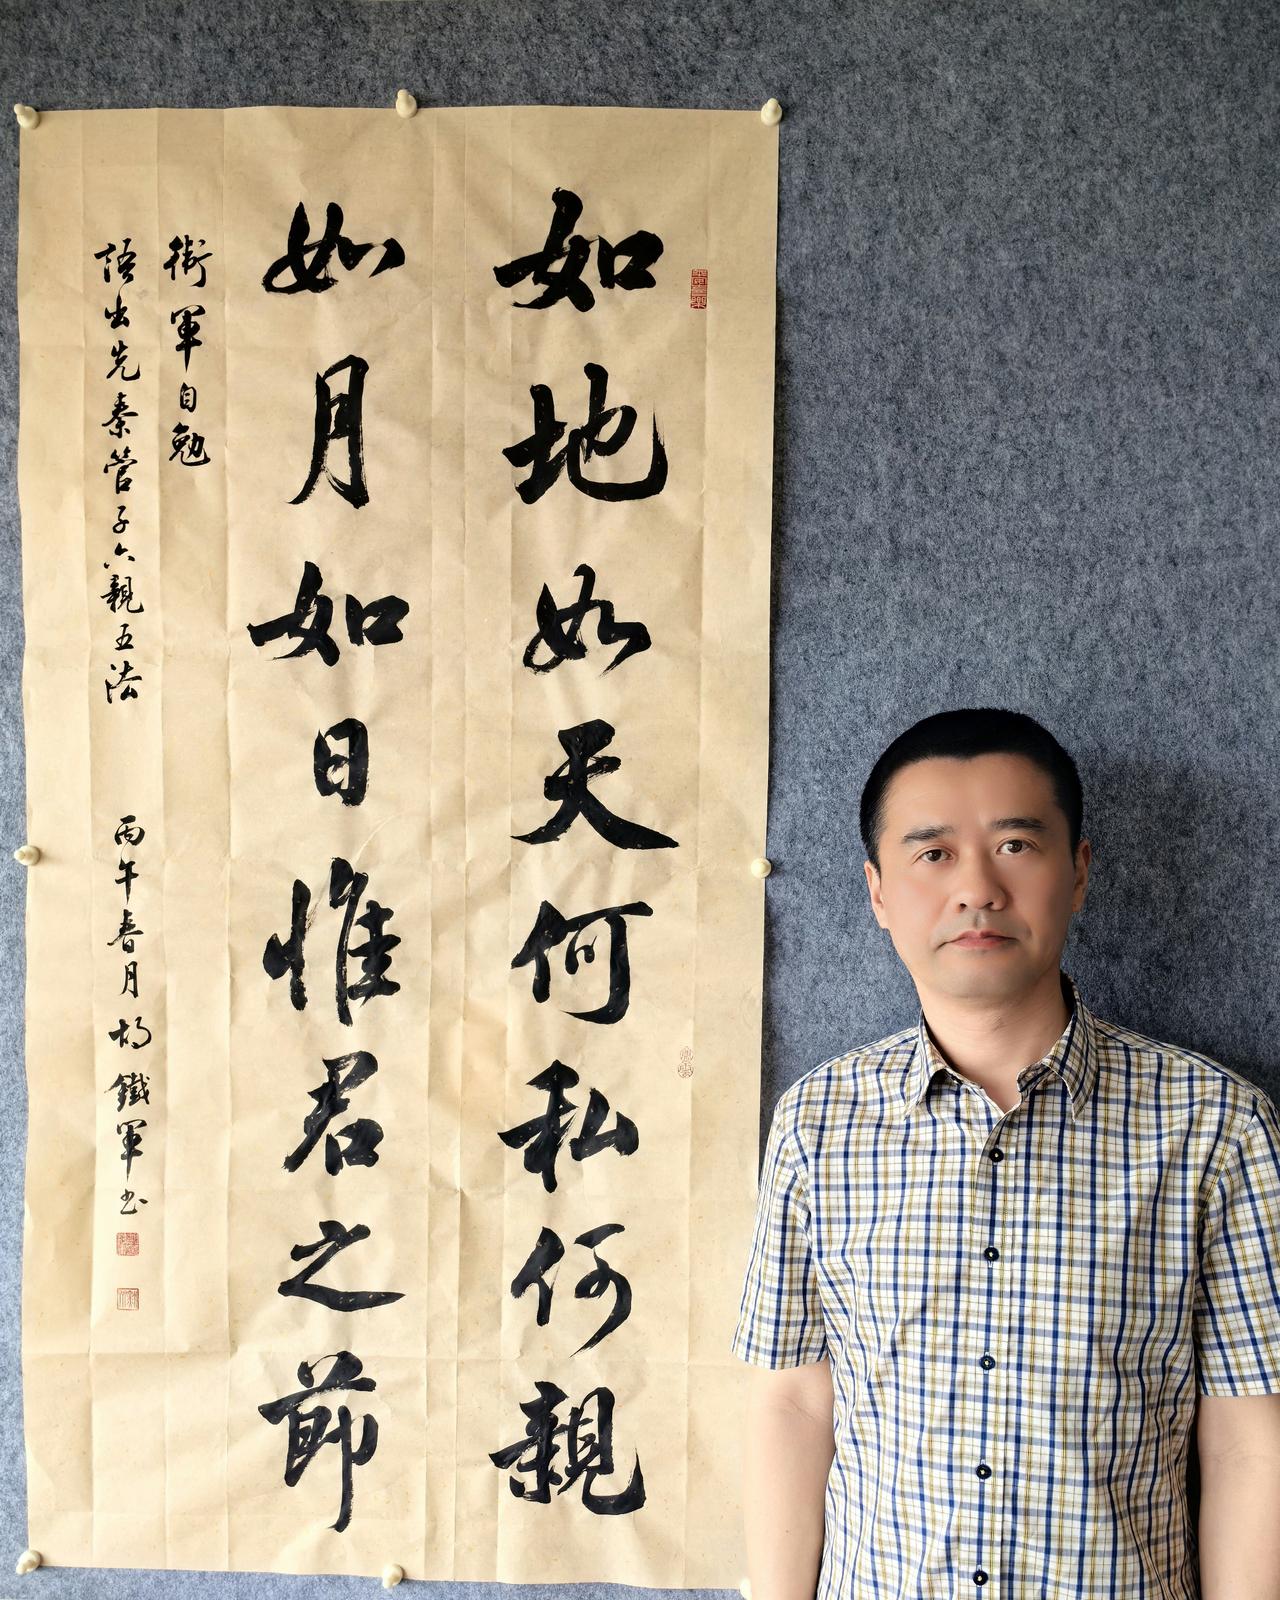 如地如天何私何親
如月如日惟君之節
衛軍自勉
語出先秦管子六親五法
丙午春月楊鐵軍书